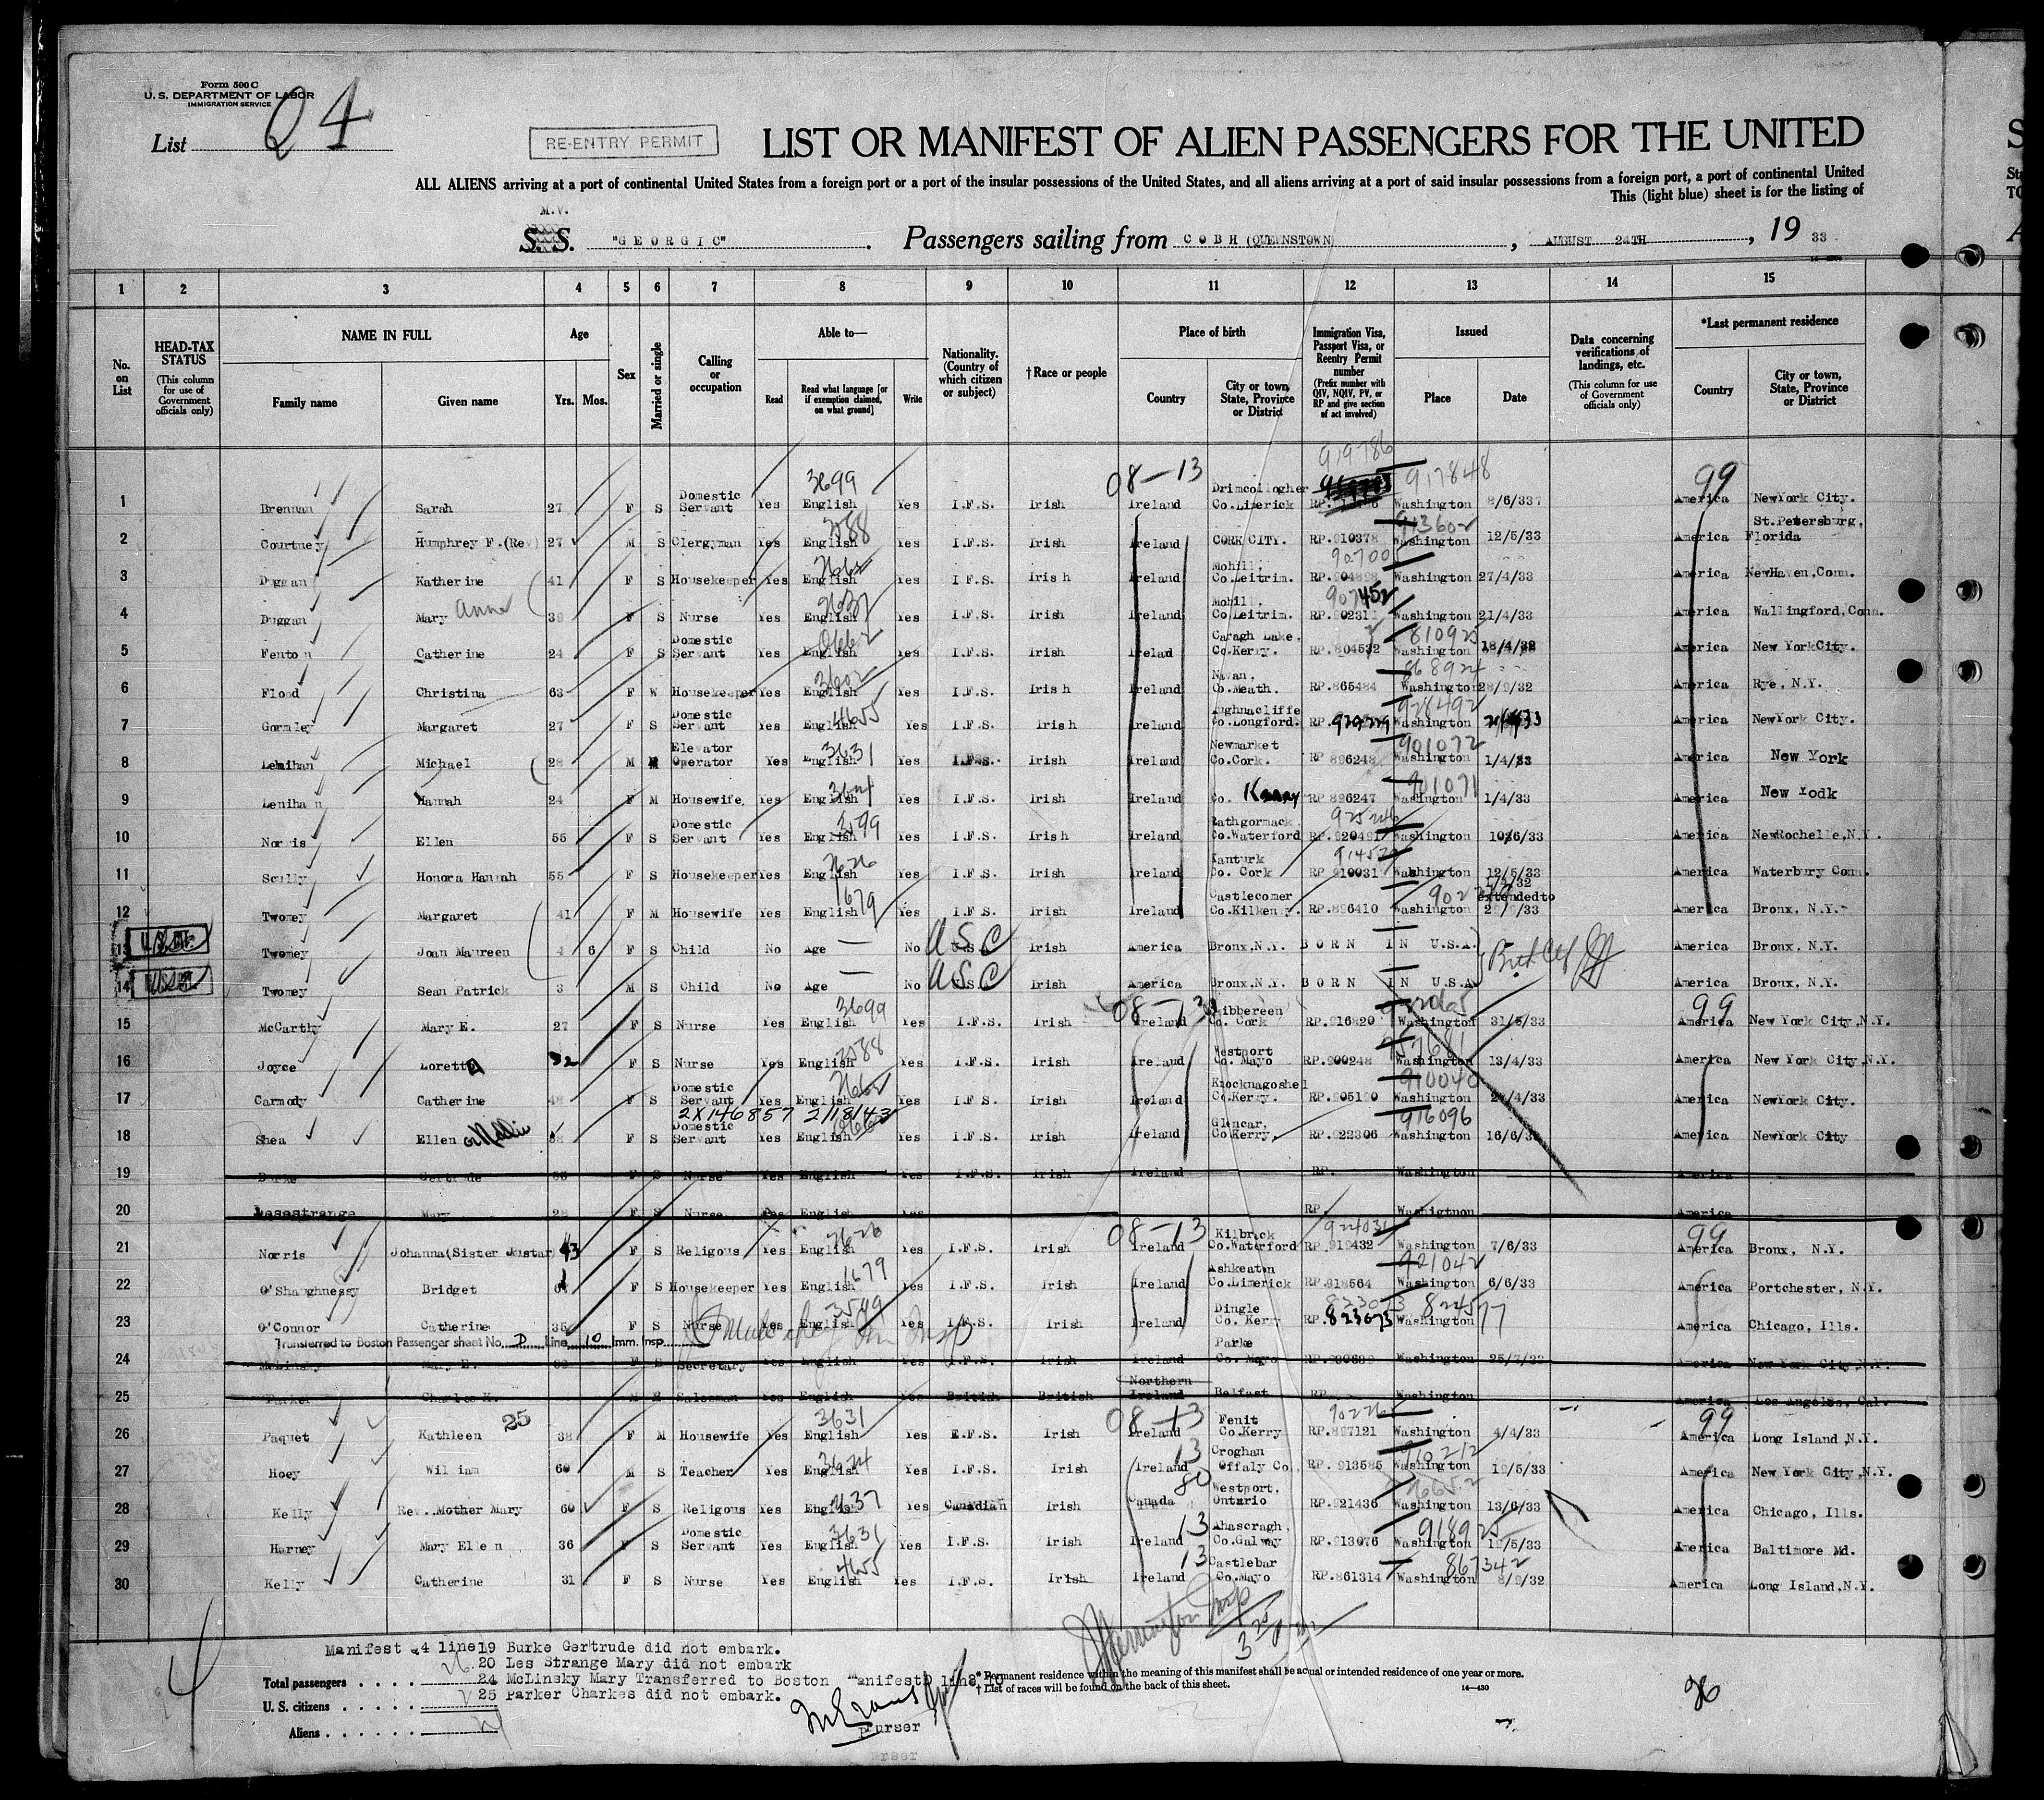 Form 500 C
U. S. DEPARTMENT OF LABOR
IMMIGRATION SERVICE
List 24
RE-ENTRY PERMIT
LIST OR MANIFEST OF ALIEN PASSENGERS FOR THE UNITED
ALL ALIENS arriving at a port of continental United States from a foreign port or a port of the insular possessions of the United States, and all aliens arriving at a port of said insular possessions from a foreign port, a port of continental United
This (light blue) sheet is for the listing of
M.V.
S. S. "GEORGIC" . Passengers sailing from COBH (QUEENSTOWN) , AUGUST 24TH , 19 33
1 2 3 4 5 6 7 8 9 10 11 12 13 14 15
No. on List HEAD-TAX STATUS (This column for use of Government officials only) NAME IN FULL Family name Given name Age Yrs. Mos. Sex Married or single Calling or occupation Able to— Read Read what language [or if exemption claimed, on what ground] Write Nationality. (Country of which citizen or subject) †Race or people Place of birth Country City or town, State, Province or District Immigration Visa, Passport Visa, or Reentry Permit number (Prefix number with QIV, NQIV, PV, or RP and give section of act involved) Issued Place Date Data concerning verifications of landings, etc. (This column for use of Government officials only) *Last permanent residence Country City or town, State, Province or District
08-13 919786 917848 99
1 Brennan Sarah 27 F S Domestic Servant Yes 3699 English Yes I.F.S. Irish Ireland Drimcollogher Co.Limerick RP. Washington 8/6/33 America NewYork City.
2 Courtney Humphrey F.(Rev) 27 M S Clergyman Yes English Yes I.F.S. Irish Ireland CORK CITY. RP.910378 913602 Washington 12/5/33 America St.Petersburg, Florida
3 Duggan Katherine 41 F S Housekeeper Yes English Yes I.F.S. Irish Ireland Mohill, Co.Leitrim. RP.904898 Washington 27/4/33 America NewHaven,Conn.
4 Duggan Mary Anne 39 F S Nurse Yes English Yes I.F.S. Irish Ireland Mohill, Co.Leitrim. 907452 RP.902311 Washington 21/4/33 America Wallingford,Conn.
5 Fenton Catherine 24 F S Domestic Servant Yes English Yes I.F.S. Irish Irelad Caragh Lake, Co.Kerry. RP.804532 810925 Washington 18/4/32 America New YorkCity.
6 Flood Christina 63 F W Housekeeper Yes English Yes I.F.S. Irish Ireland Navan, Co.Meath. RP.865484 868924 Washington 28/9/32 America Rye, N.Y.
7 Gormley Margaret 27 F S Domestic Servant Yes 4655 English Yes I.F.S. Irish Ireland Aughnacliffe Co.Longford. RP. 928492 Washington America NewYork City.
8 Lenihan Michael 28 M M Elevator Operator Yes 3631 English Yes I.F.S. Irish Ireland Newmarket Co.Cork. RP 896248 901072 Washington 1/4/33 America New York
9 Lenihan Hannah 24 F M Housewife. Yes English Yes I.F.S. Irish Ireland Co. Kerry RP 896247 901071 Washington 1/4/33 America New Yodk
10 Norris Ellen 55 F S Domestic Servant Yes 3699 English Yes I.F.S. Irish Ireland Rathgormack Co.Waterford RP.920491 Washington 10/6/33 America NewRochelle,N.Y.
11 Scully Honora Hannah 55 F S Housekeeper Yes English Yes I.F.S. Irish Ireland Kanturk Co. Cork RP 910031 Washington 12/5/33 America Waterbury Conn.
12 Twomey Margaret 41 F M Housewife Yes 1679 English Yes I.F S. Irish Ireland Castlecomer Co.Kilkenny. RP.896410 Washington extended to America Bronx, N.Y.
13 Twomey Joan Maureen 4 6 F S Child No Age — No U.S.C Irish America Bronx,N.Y. BORN IN U.S.A. America Bronx, N.Y.
14 Twomey Sean Patrick 3 M S Child No Age — No U.S.C Irish America Bronx.N.Y. BORN IN U.S.A America Bronx, N.Y.
15 McCarthy Mary E. 27 F S Nurse Yes 3699 English Yes I.F.S. Irish 08-13 Ireland Skibbereen Co. Cork RP.916820 Washington 31/5/33 99 America New York City,N.Y.
16 Joyce Loretta 32 F S Nurse Yes English Yes I.F.S. Irish Ireland Westport Co. Mayo RP.900248 Washington 13/4/33 America New York City,N.Y.
17 Carmody Catherine F S Domestic Servant Yes English Yes I.F S. Irish Ireland Knocknagoshel Co.Kerry. RP.905190 910040 Washington America NewYork City.
2X146857 2/18/43
18 Shea Ellen or Nellie 38 F S Domestic Servant Yes English Yes I.F.S. Irish Ireland Glencar, Co.Kerry, RP.922306 916096 Washington 16/6/33 America NewYork City
19 Burke Gertrude F S Nurse Yes English Yes I.F.S. Irish Ireland RP. Washington America
20 Lesestrange Mary 28 F S Nurse Yes English Yes RP. Washigtnon America
21 Norris Johanna(Sister Justan) 43 F S Religous Yes English Yes I.F.S. Irish 08-13 Ireland Kilbrack Co.Waterford 924031 RP.919432 Washington 7/6/33 99 America Bronx, N.Y.
22 O'Shaughnessy Bridget F S Housekeeper Yes 1679 English Yes I.F.S. Irish Ireland Ashkeaton Co.Limerick RP.918564 921042 Washington 6/6/33 America Portchester, N.Y.
23 O'Connor Catherine 35 F S Nurse Yes 3549 English Yes I.F.S. Irish Ireland Dingle Co. Kerry RP.823073 824577 Washington America Chicago, Ills.
Transferred to Boston Passenger sheet No. D Line 10 Imm. Insp.
24 McLinsky Mary E. F S Secretary Yes English Yes I.F.S. Irish Ireland Parke Co. Mayo Washington 25/7/33 America New York City,N.Y.
25 Parker Charles K. M M Salesman Yes English Yes British British Northern Ireland Belfast RP. Washington America Los Angeles, Cal.
26 Paquet Kathleen 25 38 F M Housewife Yes 3631 English Yes E.F.S. Irish 08-13 Ireland Fenit Co.Kerry RP.897121 Washington 4/4/33 99 America Long Island,N.Y.
27 Hoey William 60 M S Teacher Yes English Yes I.F.S. Irish 13 Ireland Croghan Offaly Co. RP. 913585 Washington 19/5/33 America New York City,N.Y.
28 Kelly Rev..Mother Mary 60 F S Religous Yes English Yes Canadian Irish 80 Canada Westport, Ontario RP.921436 Washington 13/6/33 America Chicago, Ills.
29 Harney Mary Ellen 36 F S Domestic Servant Yes 3631 English Yes I.F.S. Irish 13 Ireland Ahascragh, Co.Galway RP.913076 918925 Washington 19/5/33 America Baltimore Md.
30 Kelly Catherine 31 F S Nurse Yes 4655 English Yes I.F.S. Irish 13 Ireland Castlebar Co.Mayo RP.861314 867342 Washington 8/9/32 America Long Island,N.Y.
Manifest 24 line19 Burke Gertrude did not embark.
20 Les Strange Mary did not embark
24 McLinsky Mary Transferred to Boston Manifest D line 10
25 Parker Charkes did not embark.
Total passengers
U. S. citizens
Aliens
* Permanent residence within the meaning of this manifest shall be actual or intended residence of one year or more.
† List of races will be found on the back of this sheet.
14—430
Purser
26